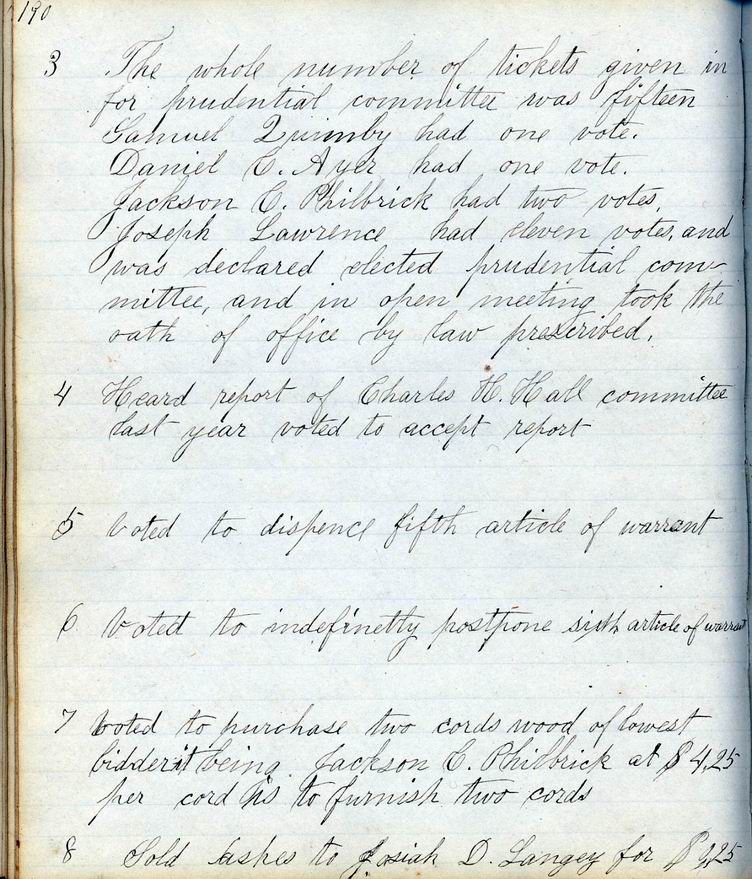 190
3 The whole number of tickets given in
for prudential committee was fifteen
Samuel Quimby had one vote.
Daniel C. Ayer had one vote.
Jackson C. Philbrick had two votes,
Joseph Lawrence had eleven votes, and
was declared elected prudential com-
mittee, and in open meeting took the
oath of office by law prescribed.
4 Heard report of Charles H. Hall committee
last year voted to accept report
5 Voted to dispence fifth article of warrent
6 Voted to indefinetly postpone sixth article of warrent
7 Voted to purchase two cords wood of lowest
bidder it being Jackson C. Philbrick at $4,25
per cord his to furnish two cords
8 Sold ashes to Josiah D. Langey for